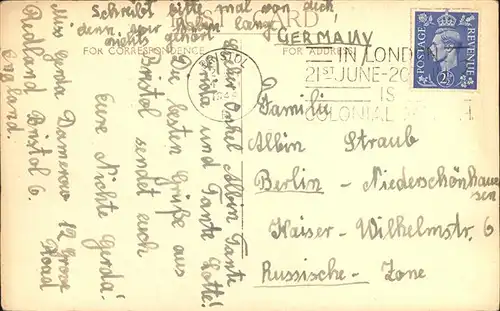 Schreibt bitte mal von euch!
denn wir haben lang
nichts gehört
CARD
FOR CORRESPONDENCE
FOR ADDRESS
GERMANY
BRISTOL
IN LONDON
21ST JUNE-20
IS
COLONIAL
POSTAGE
REVENUE
2½D
Lieber Onkel Albin, Tante
Frida und Tante Lotte!
Die besten Grüße aus
Bristol sendet euch
Eure Nichte Gerda.
Miss Gerda Damerow 12 Grove
Road
Redland Bristol 6.
England.
Familie
Albin Straub
Berlin - Niederschönhau
sen
Kaiser - Wilhelmstr. 6
Russische - Zone